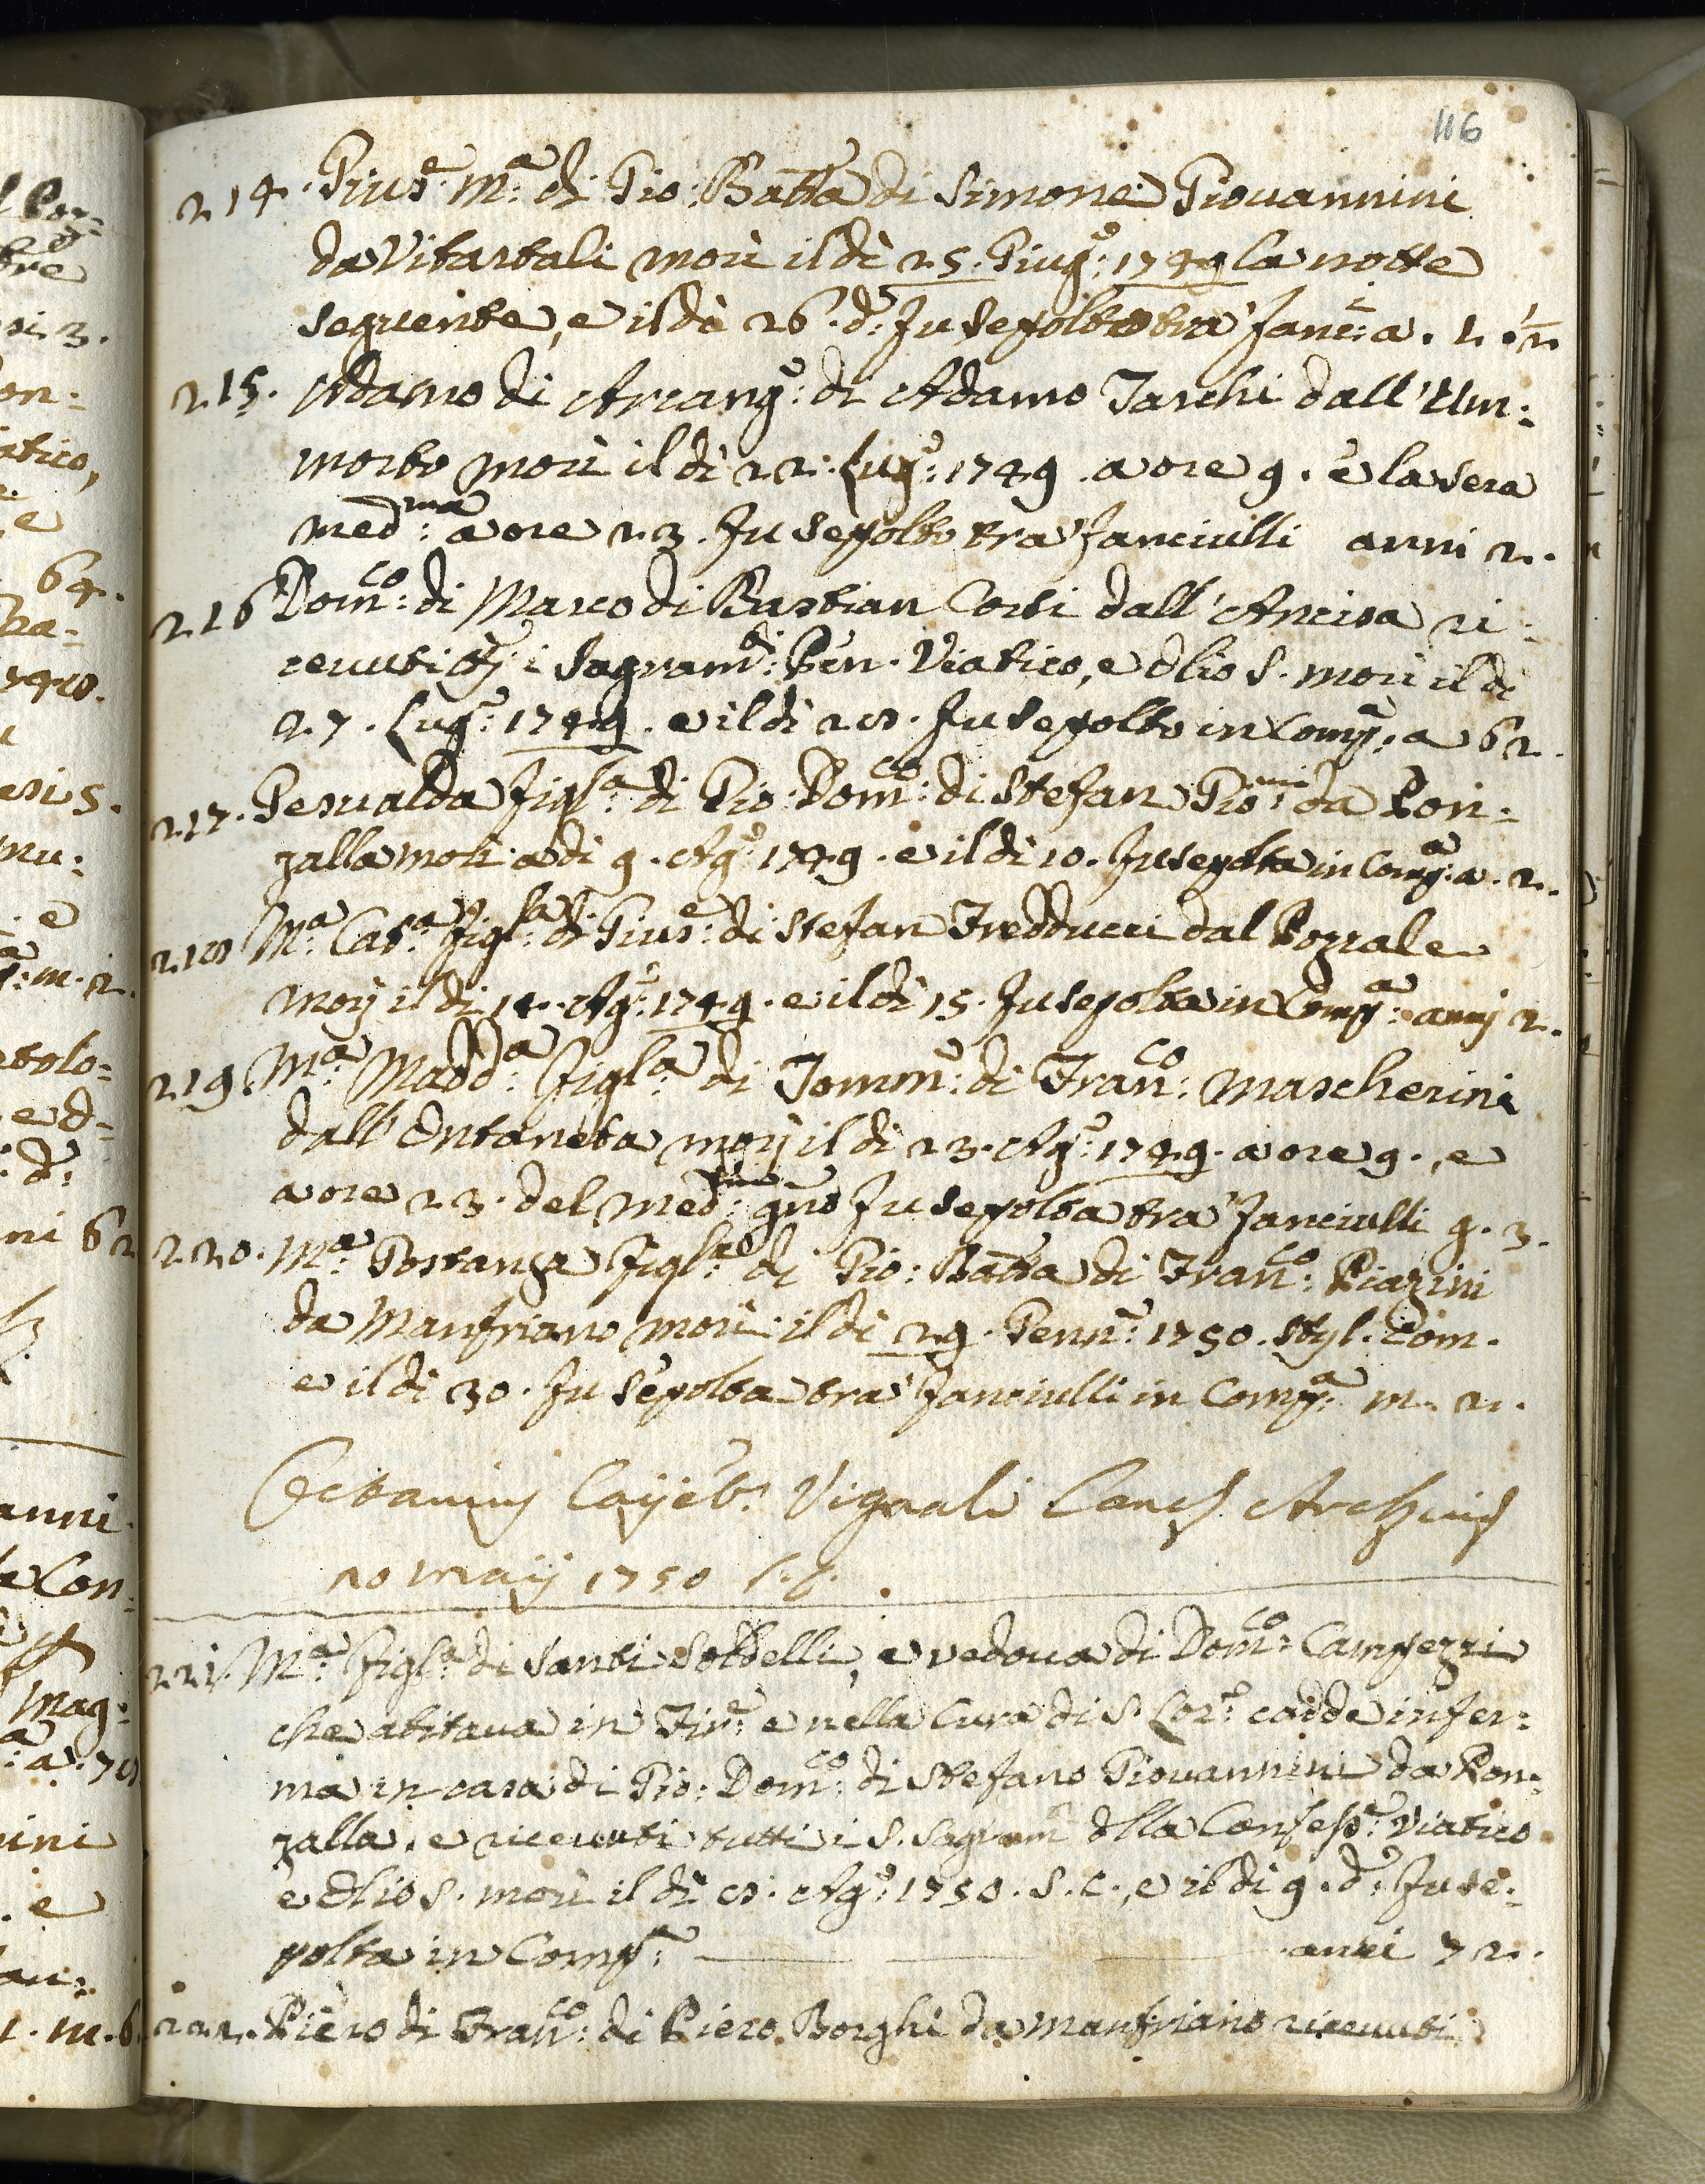 116
214. Gius.e M.a di Gio: Batta di Simone Giovannini
da Vitartali morì il dì 25. Giug.o: 1749 la notte
seguente, e il dì 26. d.o fu sepolto tra' fanc.i: a. 1. 1/2
215. Adamo di Arcang.o: di Adamo Tarchi dall' Um=
morto morì il dì 22. Lug.o: 1749. a ore 9. e la sera
med.ma: a ore 23. fu sepolto tra' fanciulli anni 2.
216 Dom.co: di Marco di Bastian Corsi dall' Ancisa ri=
cevuti i Sagram.ti: Pen. Viatico, e Olio S. morì il dì
27. Lug.o: 1749. e il dì 28. fu sepolto in Comp.a: a 62.
217. Gesualda figl.a di Gio: Dom.co: di Stefan Gio.ni da Ron=
zalla morì adì 9. Ag.o: 1749. e il dì 10. fu sepolta in Comp.a: a. 2.
218 M.a Cat.a figl.la: di Gius.e: di Stefan Fredducci dal Pozzale
morì il dì 14. Ag.o: 1749. e il dì 15. fu sepolta in Comp.a: anni 2.
219 M.a: Madd.a: figl.a di Tomm.o: di Fran.co: Mascherini
dall' Ontaneta morì il dì 23. Ag.o: 1749. a ore 9., e
a ore 23. del med.: gno fu sepolta tra' fanciulli g. 3.
220. M.a: Gostanza figl.la di Gio: Batta di Fran.co: Piazini
da Manfriano morì il dì 29. Genn.o: 1750. Styl. Rom.
e il dì 30. fu sepolta tra' fanciulli in Comp.a: m. 21.
Octavius Vignali Canc.s
20 Maij 1750
221. M.a: figl.a di Santi Soldelli, e vedova di Dom.co: Campezzi
che abitava in Fir.e: e nella Cura di S. Lor.o: cadde infer=
ma in casa di Gio: Dom.co: di Stefano Giovannini da Ron=
zalla. e ricevuti tutti i S. Sagram.i della Confess.e: Viatico
e Olio S. morì il dì 8. Ag.o: 1750. S. C., e il dì 9. d.o: fu se=
polta in Comp.a: anni 72.
222. Piero di Fran.co: di Piero Borghi da Manfriano ricevuti